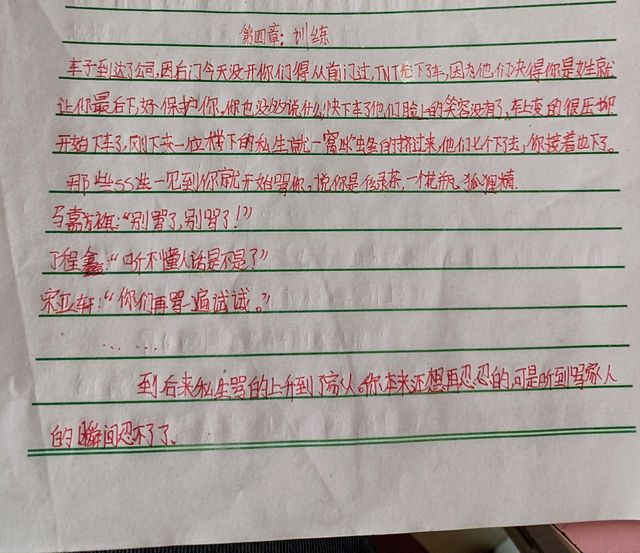 第四章：训练
车子到达了公司，因后门今天没开你们得从前门过，TNT先下了车，因为他们决得你是女生就
让你最后下，好保护你。你也没必说什么，快下车了他们脸上的笑容没有了，车上变的很压抑
开始下车了，刚下去一位楼下的私生就一窝蜂的挤过来，他们七个下了去，你接着也下了。
那些SS生一见到你就开始骂你，说你是位绿茶，一个花瓶。狐狸精.
马嘉祺："别骂了，别骂了！"
丁程鑫："听不懂人话是不是了"
宋亚轩："你们再骂一遍试试。"
......
到后来私生骂的上升到了家人。你本来还想再忍忍的，可是听到骂家人
的瞬间忍不了了。